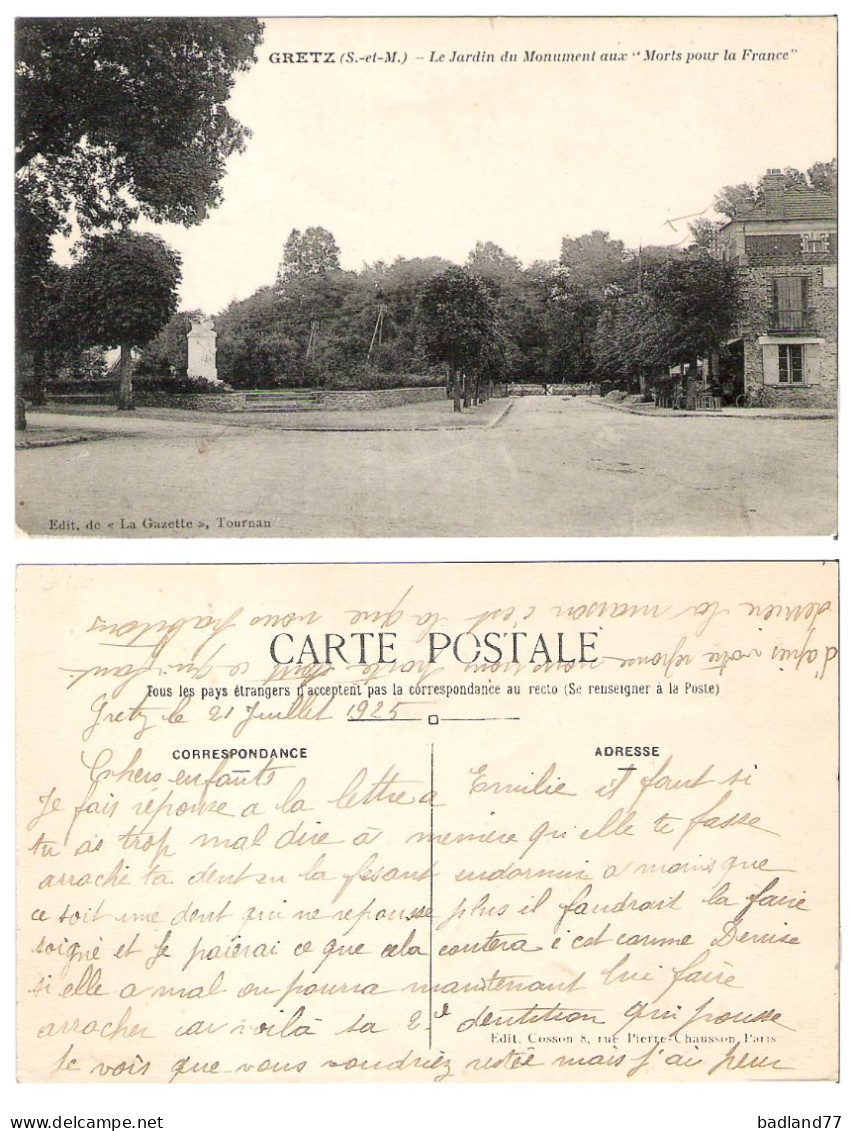 GRETZ (S.-et-M.) – Le Jardin du Monument aux "Morts pour la France"
Edit. de « La Gazette », Tournan
derrien la maison c'est la que nous habitons
d'apràs votre reponse nous irons porte ce qui faut
CARTE POSTALE
Tous les pays étrangers n'acceptent pas la correspondance au recto (Se renseigner à la Poste)
Gretz le 21 Juillet 1925
CORRESPONDANCE
ADRESSE
Chers enfants
Je fais réponse a la lettre a Emilie it faut si
tu as trop mal dire à memère qu'elle te fasse
arraché ta dent en la fesant endormir a moins que
ce soit une dent qui ne repousse plus il faudrait la faire
soigné et je paierai ce que cela coutera i est comme Denise
si elle a mal on pourra maintenant lui faire
arracher car voilà sa 2e dentition qui pousse
Edit. Cosson 8, rue Pierre-Chausson, Paris
Je vois que vous voudriez restée mais j'ai peur
delcampe.net
badland77